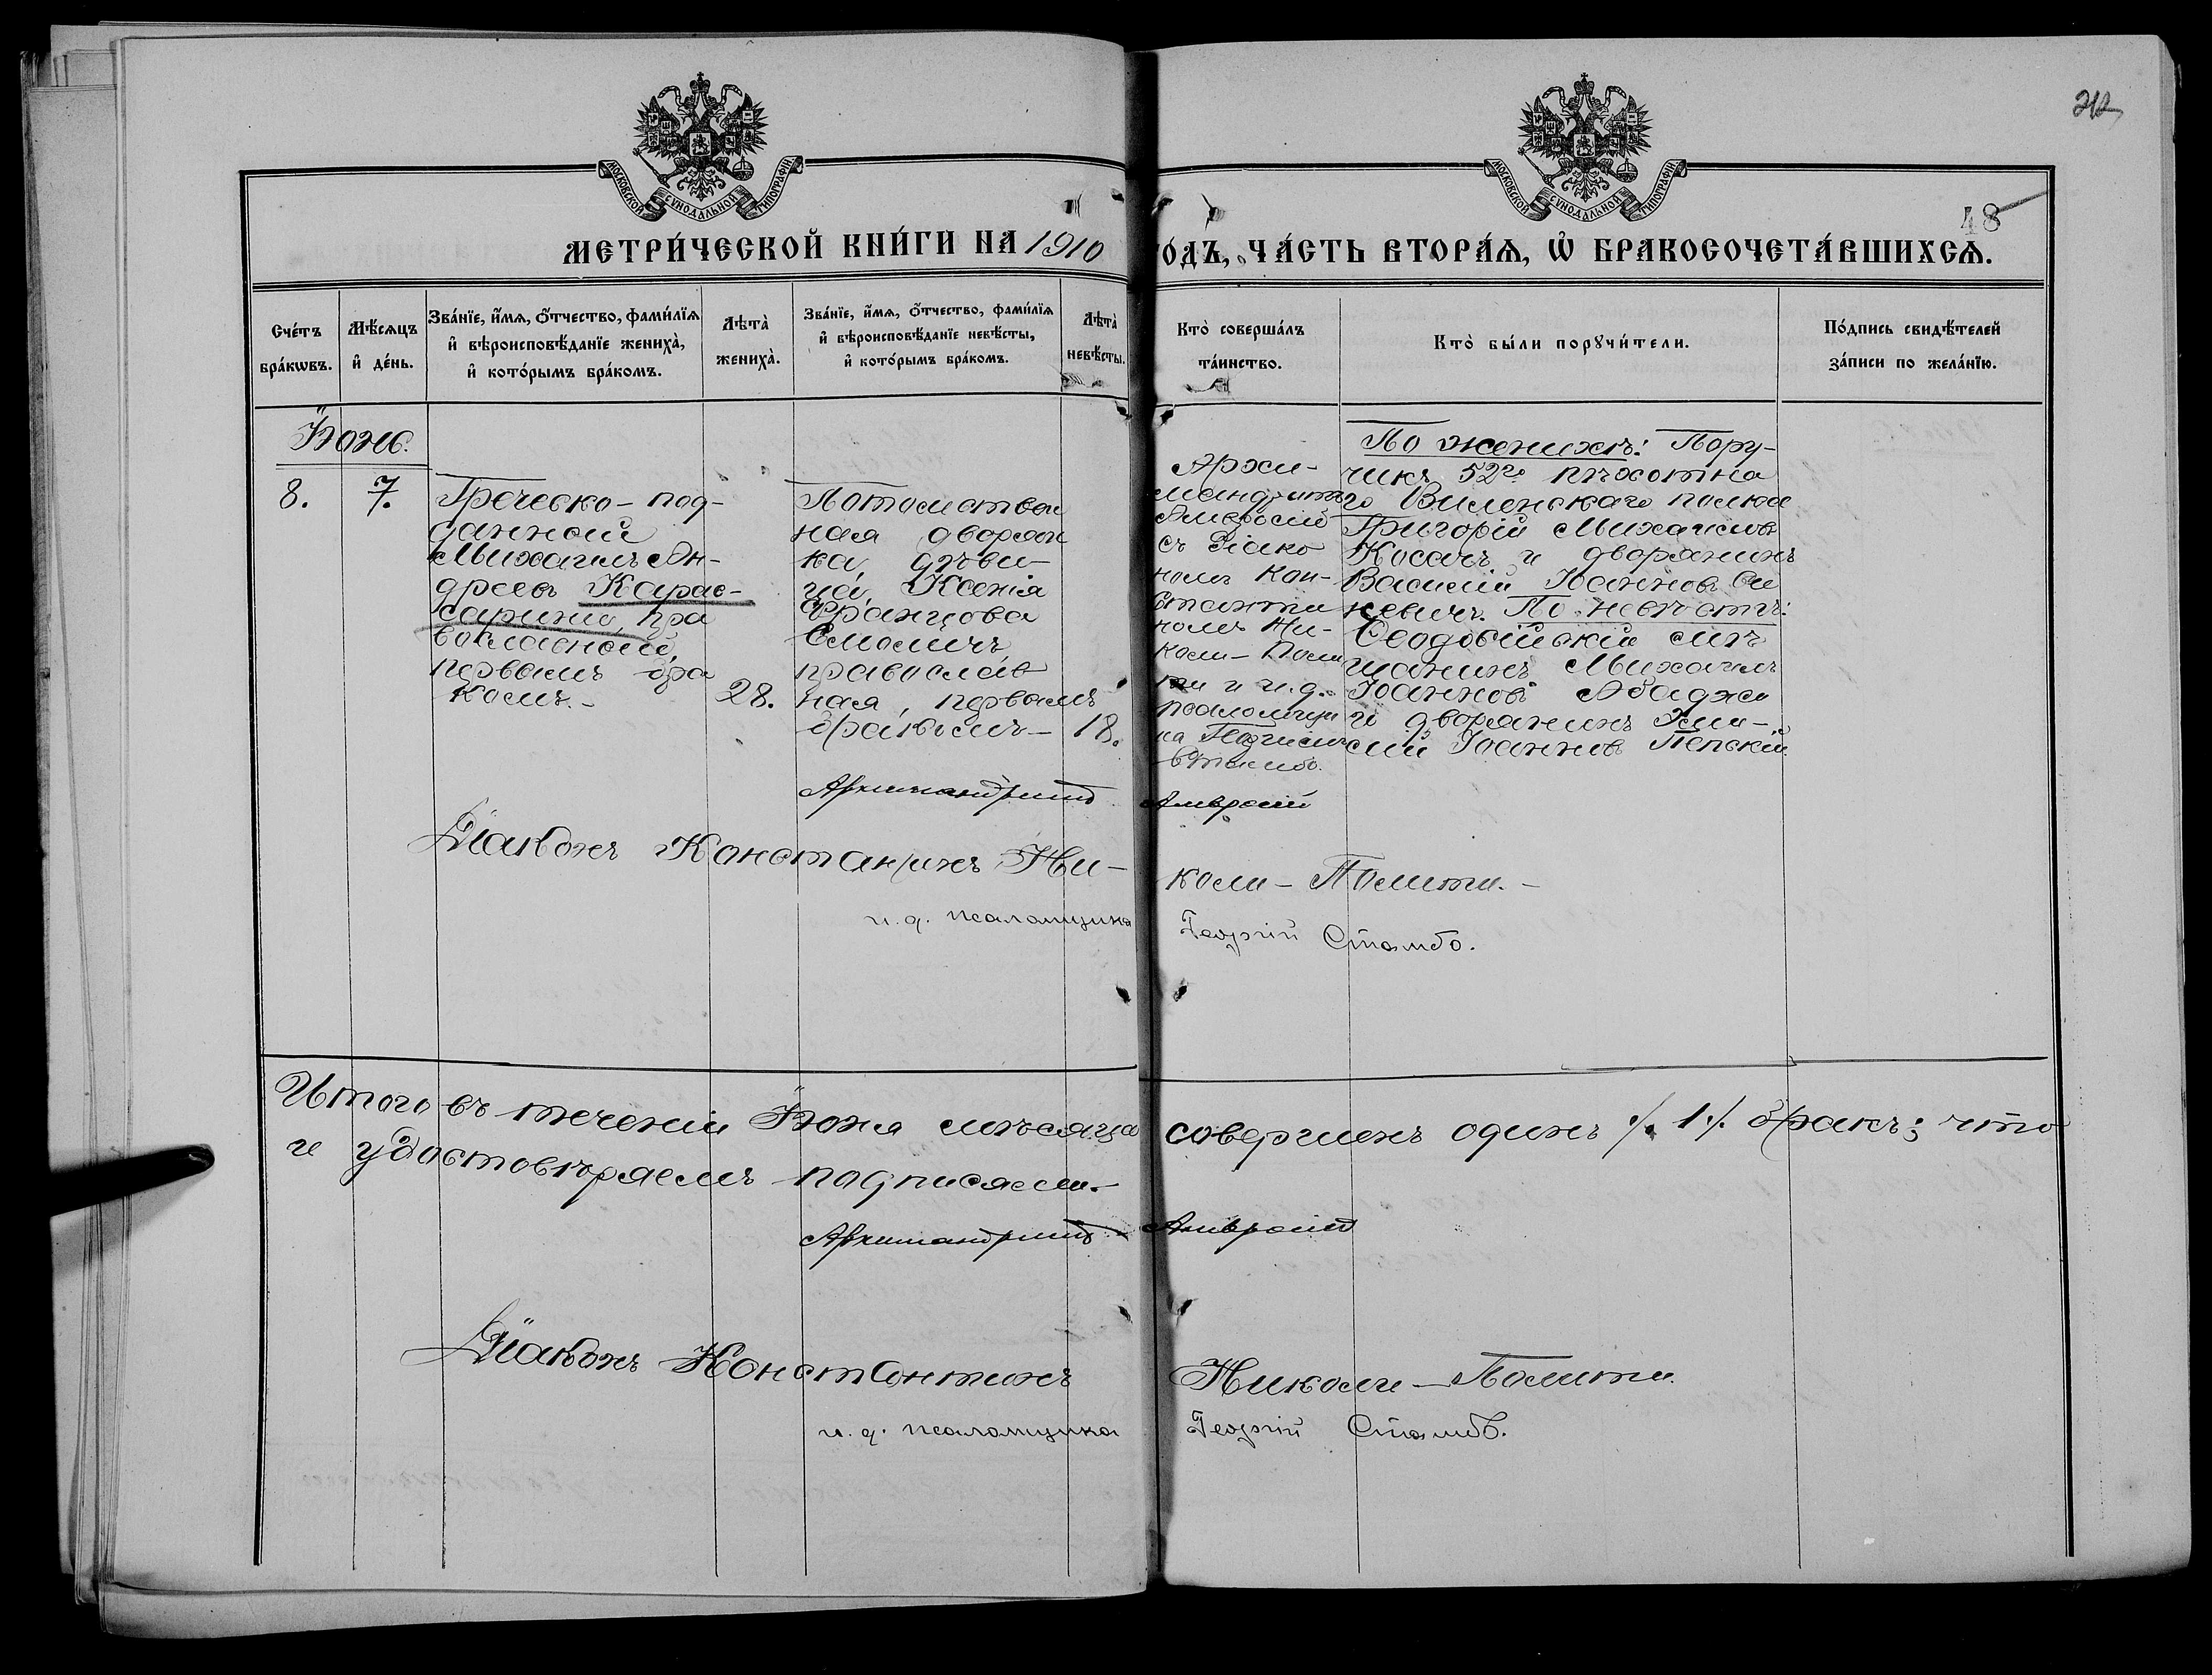 212
48
МОСКОВСКОЙ СѴНОДАЛЬНОЙ ТИПОГРАФІИ
МОСКОВСКОЙ СѴНОДАЛЬНОЙ ТИПОГРАФІИ
МЕТРИ́ЧЕСКОЙ КНИ́ГИ НА 1910 ГО́ДЪ, ЧА́СТЬ ВТОРА́Ѧ, Ѡ҆ БРАКОСОЧЕТА́ВШИХСѦ.
Сче́тъ
бра́кѡвъ.
Мѣ́сѧцъ
и҆ де́нь.
Зва́нїе, и҆́мѧ, ѻ҆́тчество, фами́лїѧ
и҆ вѣроисповѣ́данїе жениха̀,
и҆ кото́рымъ бра́комъ.
Лѣта̀
жениха̀.
Зва́нїе, и҆́мѧ, ѻ҆́тчество, фами́лїѧ
и҆ вѣроисповѣ́данїе невѣ́сты,
и҆ кото́рымъ бра́комъ.
Лѣта̀
невѣ́сты.
Кто̀ соверша́лъ
та́инство.
Кто̀ бы́ли порꙋчи́тели.
По́дпись свидѣ́телей
за́писи по жела́нїю.
Іюнь.
8.
7.
Греческо-под-
данной
Михаилъ Ан-
дреевъ Карас-
сарини, пра
вославной,
первымъ бра
комъ.-
28.
Потомствен
ная дворян
ка, дѣви-
ца, Ксенія
Францова
Смоличъ
православ
ная, первымъ
бракомъ-
18.
Архи-
мандритъ
Амвросій
съ Діако
номъ Кон-
станти
номъ Ни-
коли-Поли
ти и и.д.
псаломщи
ка Георгіемъ
Стамбо.
По женихѣ: Пору-
чикъ 52го пѣхотна
го Виленскаго полка
Григорій Михаиловъ
Косачъ и дворянинъ
Василій Іоанновъ Си
невичъ. По невѣстѣ:
Ѳеодосійскій мѣ
щанинъ Михаилъ
Іоанновъ Абаджи
и дворянинъ
Іоанновъ Лепскій.
Архимандритъ Амвросій
Діаконъ Константинъ Ни-
коли-Полити.-
и.д. псаломщика Георгій Стамбо.
Итого въ теченіи Іюня мѣсяца совершенъ одинъ /.1./ бракъ; что
и удостовѣряемъ подписями.-
Архимандритъ Амвросій
Діаконъ Константинъ Николи-Полити.
и.д. псаломщика Георгій Стамбо.